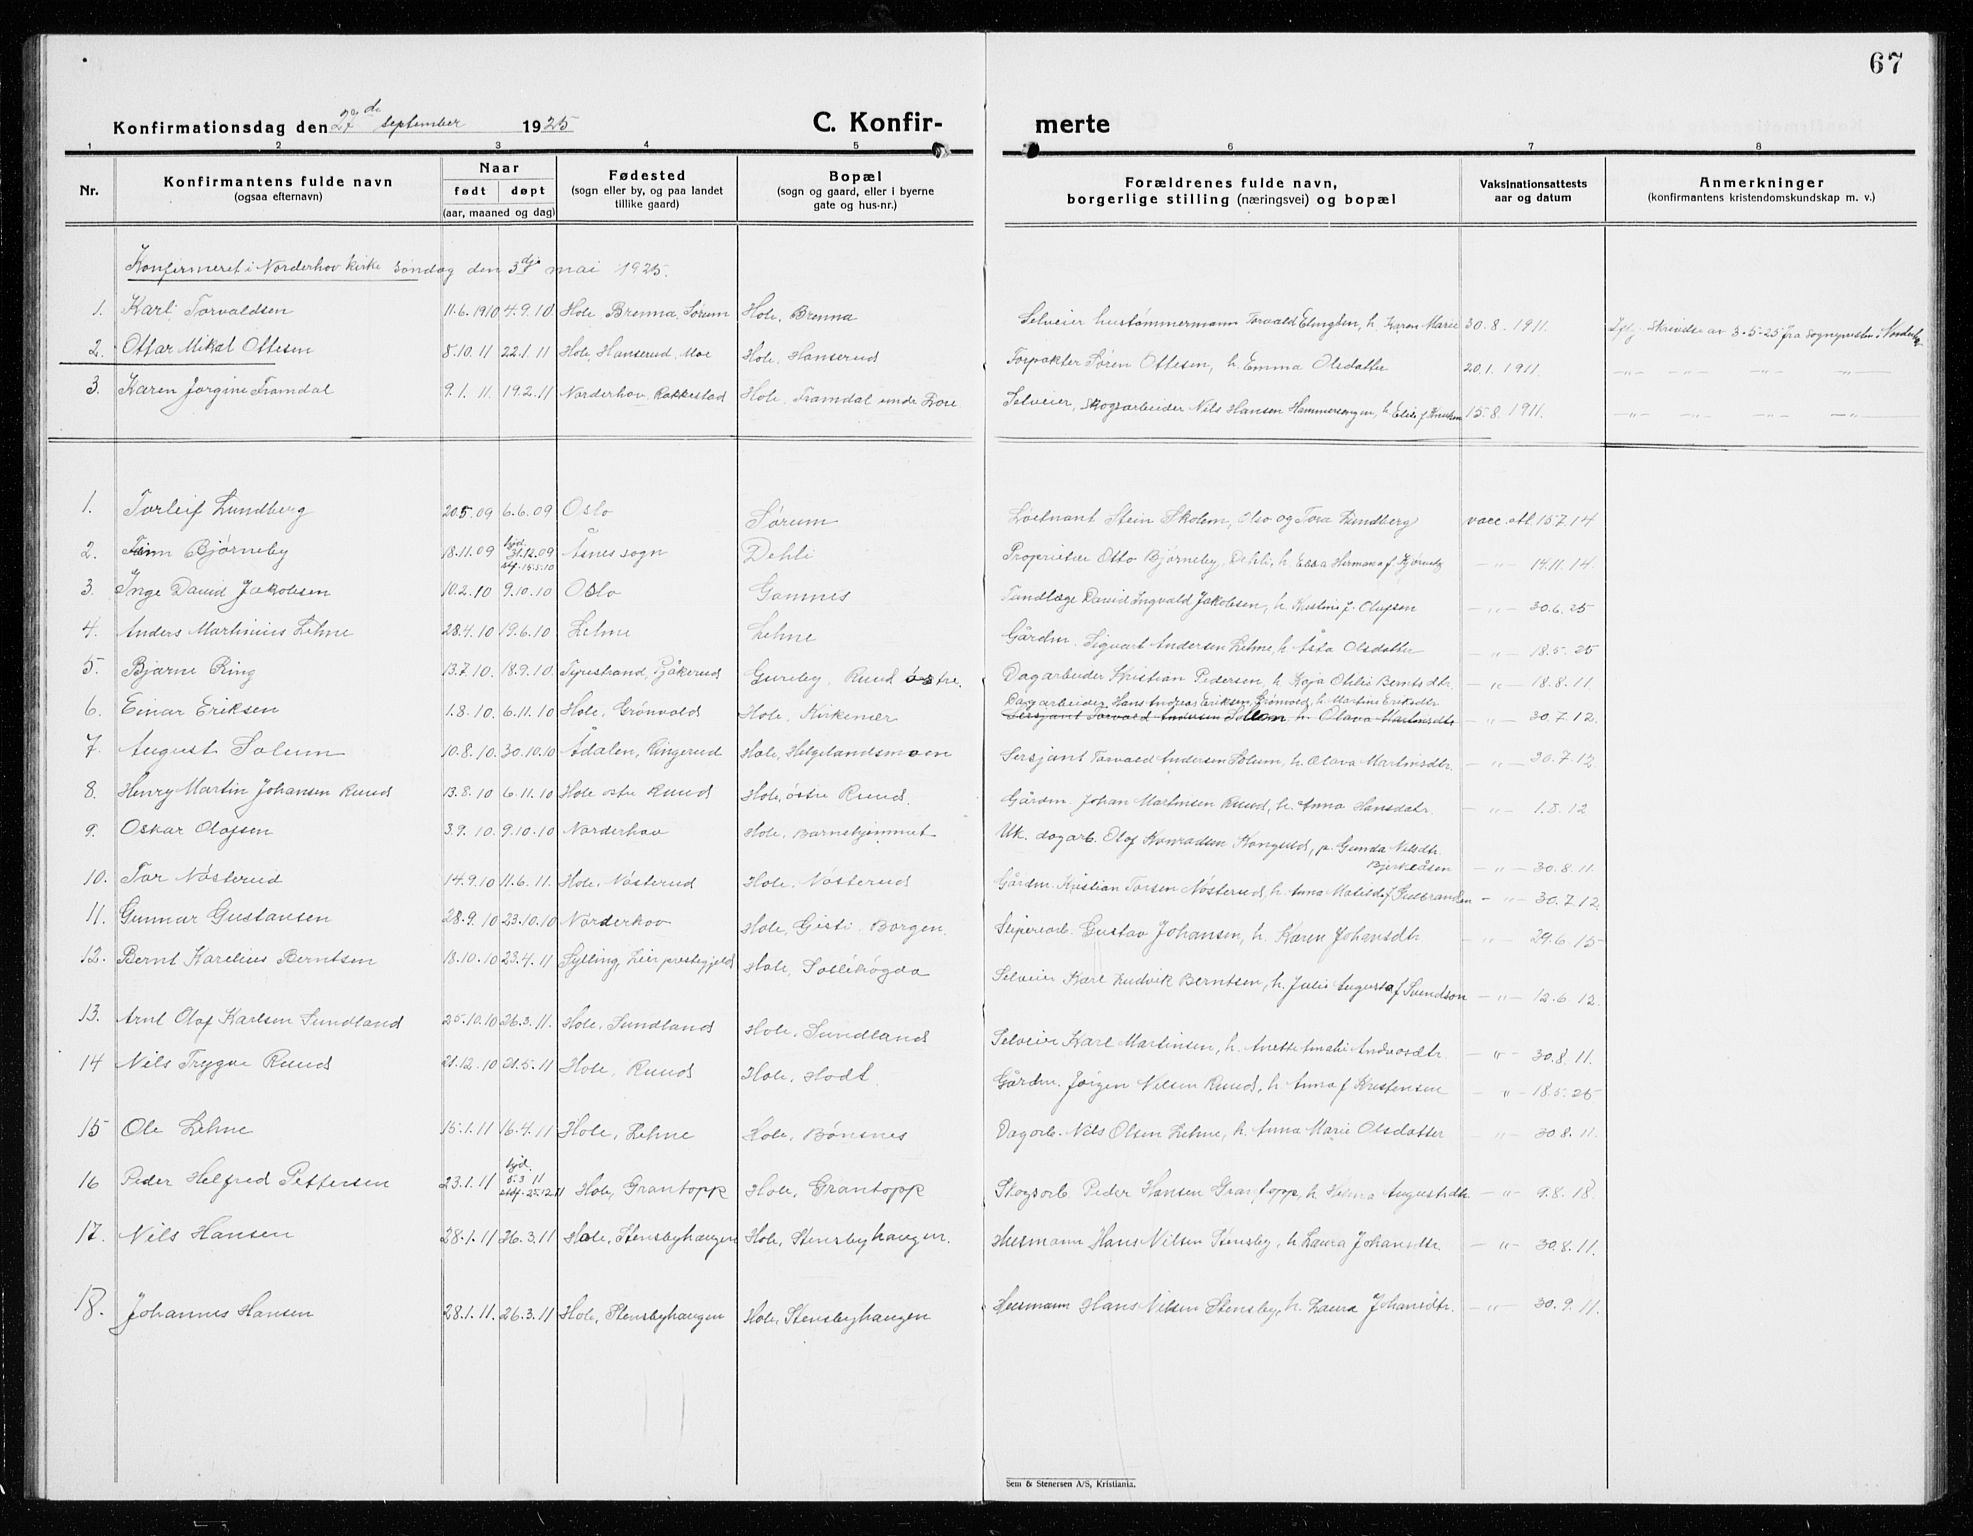 67
Konfirmationsdag den 27de september 1925 C. Konfir- merte
1 2 3 4 5 6 7 8
Nr. Konfirmantens fulde navn (ogsaa efternavn) Naar født døpt (aar, maaned og dag) Fødested (sogn eller by, og paa landet tillike gaard) Bopæl (sogn og gaard, eller i byerne gate og hus-nr.) Forældrenes fulde navn, borgerlige stilling (næringsvei) og bopæl Vaksinationsattests aar og datum Anmerkninger (konfirmantens kristendomskundskap m. v.)
Konfirmeret i Norderhov kirke søndag den 3dje mai 1925.
1. Karli Torvaldsen 11.6.1910 4.9.10 Hole Brenna, Sørum Hole, Brenna Selveier hustømmermann Torvald Elingsen, h. Karen Marie 30.8.1911. Ifølg. skrivelse av 3-5-25 fra sognepresten i Norderhov
2. Ottar Mikal Ottesen 8.10.11 22.1.11 Hole, Hanserud, Moe Hole, Hanserud Forpakter Søren Ottesen, h. Emma Olsdatter 20.1.1911. —„— —„— —„— —„—
3. Karen Jorgine Framdal 9.1.11 19.2.11 Norderhov, Rakkestad Hole, Framdal under Selveier, skogsarbeider Nils Hansen Hammersengen, h. Elise f. Knutsen 15.8.1911. —„— —„— —„— —„—
1. Torleif Lundberg 20.5.09 6.6.09 Oslo Sørum Løitnant Stein Skolem, Oslo og Tora Lundberg vacc. att. 15.7.14
2. Finn Bjørneby 18.11.09 hjd. 31.12.09 stf. 15.5.10 Åsnes sogn Dehli Proprietær Otto Bjørneby, Dehli, h. Ebba Hermana f. Bjørneby —„— 14.11.14.
3. Inge David Jakobsen 10.2.10 9.10.10 Oslo Gomnes Tandlæge David Ingvald Jakobsen, h. Kristine f. Olufsen —„— 30.6.25
4. Anders Martinius Lehne 28.4.10 19.6.10 Lehne Lehne Gårdm. Sigvart Andersen Lehne, h. Åsta Olsdatter —„— 18.5.25
5. Bjarne Ring 13.7.10. 18.9.10 Tyristrand, Bjåkerud Gureby, Ruud østre. Dagarbeider Kristian Pedersen, h. Kaja Othlie Berntsdtr. —„— 18.8.11.
6. Einar Eriksen 1.8.10. 6.11.10 Hole, Grønvold Hole, Kirkemær Dagarbeider Hans Andreas Eriksen Grønvold, h. Martine Eriksdtr.
Sersjant Torvald Andersen Solem h. Olava Martinsdtr —„— 30.7.12.
7. August Solum 10.8.10. 30.10.10 Ådalen, Ringerud Hole, Helgelandsmoen Sersjant Torvald Andersen Solum, h. Olava Martinsdtr. —„— 30.7.12
8. Henry Martin Johansen Ruud 13.8.10 6.11.10 Hole østre Ruud Hole, østre Ruud. Gårdm. Johan Martinsen Ruud, h. Anna Hansdatr. —„— 1.8.12
9. Oskar Olofsen 3.9.10 9.10.10 Norderhov Hole, Barnehjemmet Uk. dagarb. Olof Konradsen p. Gunda Nilsdtr. Bjerkeåsen —„— 30.8.11.
10. Tor Nösterud 14.9.10 11.6.11. Hole, Nösterud Hole, Nösterud Gårdm. Kristian Torsen Nøsterud, h. Anna Matilde f. Gudbrandsen —„— 30.7.12.
11. Gunnar Gustavsen 28.9.10 23.10.10 Norderhov Hole, Gisti. Borgen. Sliperiarb. Gustav Johansen, h. Karen Johansdtr —„— 29.6.15
12. Bernt Karelius Berntsen 18.10.10 23.4.11 Sylling, Lier prestegjeld Hole, Sollihøgda Selveier Karl Ludvik Berntsen, h. Julie Augusta f. Svendson —„— 12.6.12.
13. Arnt Olaf Karlsen Sundland 25.10.10 26.3.11. Hole, Sundland Hole, Sundland Selveier Karl Martinsen, h. Anette Amalie —„— 30.8.11.
14 Nils Trygve Ruud 21.12.10 21.5.11 Hole, Ruud Hole, Hodt. Gårdm. Jørgen Nilsen Ruud, h. Anna f. Kristensen —„— 18.5.25
15 Ole Lehne 15.1.11 16.4.11 Hole, Lehne Hole, Bönsnes Dagarb. Nils Olsen Lehne, h. Anna Marie Olsdatter —„— 30.8.11.
16 Peder Helfred Pettersen 23.1.11 hjd. 5.3.11 stdf. 25.12.11 Hole, Grantopp Hole, Grantopp Skogsarb. Peder Hansen Grantopp, h. Helma Augustsdtr. —„— 9.8.18.
17. Nils Hansen 28.1.11 26.3.11 Hole, Stensbyhaugen Hole, Stensbyhaugen. Husmann Hans Nilsen Stensby, h. Laura Johansdtr. —„— 30.8.11.
18. Johannes Hansen 28.1.11. 26.3.11 Hole, Stensbyhaugen Hole, Stensbyhaugen Husmann Hans Nilsen Stensby, h. Laura Johansdtr. —„— 30.9.11.
Sem & Stenersen A/S, Kristiania.